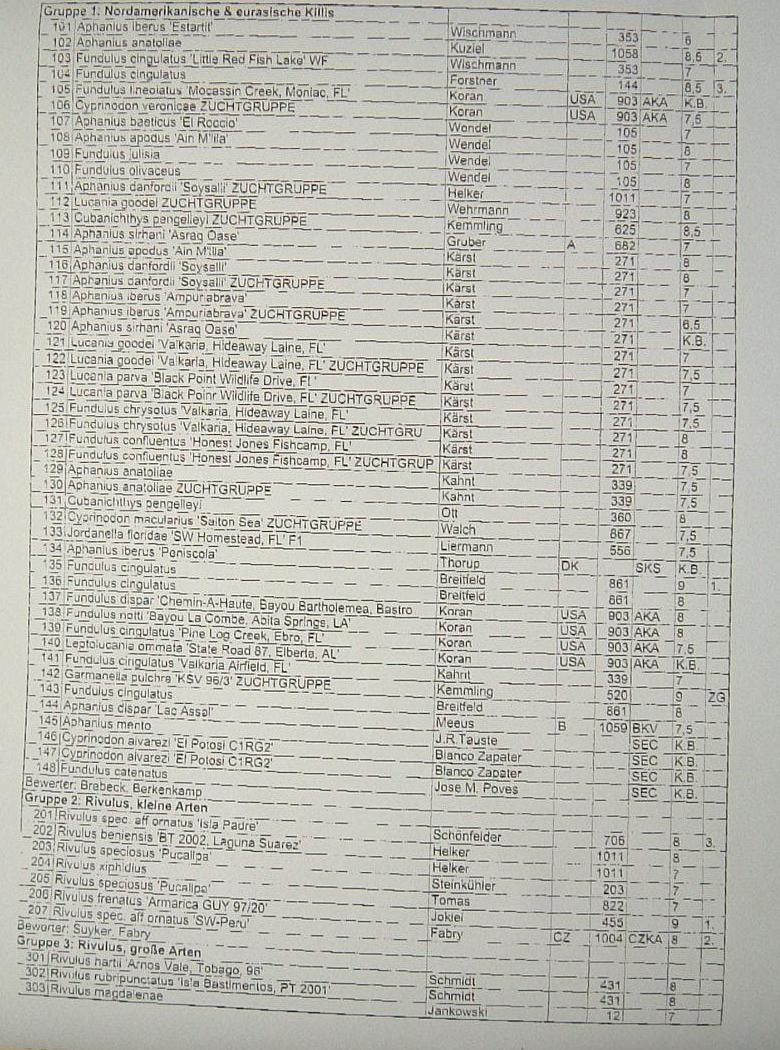 Gruppe 1: Nordamerikanische & eurasische Killis
101 Aphanius iberus 'Estartit' Wischmann 353 6
102 Aphanius anatoliae Kuziel 1058 8,5 2.
103 Fundulus cingulatus 'Little Red Fish Lake' WF Wischmann 353 7
104 Fundulus cingulatus Forstner 144 8,5 3.
105 Fundulus lineolatus 'Mocassin Creek, Moniac, FL' Koran USA 903 AKA K.B.
106 Cyprinodon veronicae ZUCHTGRUPPE Koran USA 903 AKA 7,5
107 Aphanius baeticus 'El Roccio' Wendel 105 7
108 Aphanius apodus 'Ain M'lila' Wendel 105 8
109 Fundulus julisia Wendel 105 7
110 Fundulus olivaceus Wendel 105 8
111 Aphanius danfordii 'Soysalli' ZUCHTGRUPPE Helker 1011 7
112 Lucania goodei ZUCHTGRUPPE Wehrmann 923 8
113 Cubanichthys pengelleyi ZUCHTGRUPPE Kemmling 625 8,5
114 Aphanius sirhani 'Asraq Oase' Gruber A 682 7
115 Aphanius apodus 'Ain M'lila' Kärst 271 8
116 Aphanius danfordii 'Soysalli' Kärst 271 8
117 Aphanius danfordii 'Soysalli' ZUCHTGRUPPE Kärst 271 7
118 Aphanius iberus 'Ampuriabrava' Kärst 271 7
119 Aphanius iberus 'Ampuriabrava' ZUCHTGRUPPE Kärst 271 6,5
120 Aphanius sirhani 'Asraq Oase' Kärst 271 K.B.
121 Lucania goodei 'Valkaria, Hideaway Laine, FL' Kärst 271 7
122 Lucania goodei 'Valkaria, Hideaway Laine, FL' ZUCHTGRUPPE Kärst 271 7,5
123 Lucania parva 'Black Point Wildlife Drive, FL' Kärst 271 7
124 Lucania parva 'Black Poinr Wildlife Drive, FL' ZUCHTGRUPPE Kärst 271 7,5
125 Fundulus chrysotus 'Valkaria, Hideaway Laine, FL' Kärst 271 7,5
126 Fundulus chrysotus 'Valkaria, Hideaway Laine, FL' ZUCHTGRU Kärst 271 8
127 Fundulus confluentus 'Honest Jones Fishcamp, FL' Kärst 271 8
128 Fundulus confluentus 'Honest Jones Fishcamp, FL' ZUCHTGRUP Kärst 271 7,5
129 Aphanius anatoliae Kahnt 339 7,5
130 Aphanius anatoliae ZUCHTGRUPPE Kahnt 339 7,5
131 Cubanichthys pengelleyi Ott 360 8
132 Cyprinodon macularius 'Salton Sea' ZUCHTGRUPPE Walch 867 7,5
133 Jordanella floridae 'SW Homestead, FL' F1 Liermann 556 7,5
134 Aphanius iberus 'Peniscola' Thorup DK SKS K.B.
135 Fundulus cingulatus Breitfeld 861 9 1.
136 Fundulus cingulatus Breitfeld 861 8
137 Fundulus dispar 'Chemin-A-Haute, Bayou Bartholemea, Bastro Koran USA 903 AKA 8
138 Fundulus notti 'Bayou La Combe, Abita Springs, LA' Koran USA 903 AKA 8
139 Fundulus cingulatus 'Pine Log Creek, Ebro, FL' Koran USA 903 AKA 7,5
140 Leptolucania ommata 'State Road 87, Elberta, AL' Koran USA 903 AKA K.B.
141 Fundulus cingulatus 'Valkaria Airfield, FL' Kahnt 339 7
142 Garmanella pulchra 'KSV 96/3' ZUCHTGRUPPE Kemmling 520 9 ZG
143 Fundulus cingulatus Breitfeld 861 8
144 Aphanius dispar 'Lac Assel' Meeus B 1059 BKV 7,5
145 Aphanius mento J.R.Tauste SEC K.B.
146 Cyprinodon alvarezi 'El Potosi C1RG2' Blanco Zapater SEC K.B.
147 Cyprinodon alvarezi 'El Potosi C1RG2' Blanco Zapater SEC K.B.
148 Fundulus catenatus Jose M. Poves SEC K.B.
Bewerter: Brebeck, Berkenkamp
Gruppe 2: Rivulus, kleine Arten
201 Rivulus spec. aff ornatus 'Isla Padre' Schönfelder 706 8 3.
202 Rivulus beniensis 'BT 2002, Laguna Suarez' Helker 1011 8
203 Rivulus speciosus 'Pucallpa' Helker 1011 7
204 Rivulus xiphidius Steinkühler 203 7
205 Rivulus speciosus 'Pucallpa' Tomas 822 7
206 Rivulus frenatus 'Armarica GUY 97/20' Jokiel 455 9 1.
207 Rivulus spec. aff ornatus 'SW-Peru' Fabry CZ 1004 CZKA 8 2.
Bewerter: Suyker, Fabry
Gruppe 3: Rivulus, große Arten
301 Rivulus hartii 'Arnos Vale, Tobago, 96' Schmidt 431 8
302 Rivulus rubripunctatus 'Isla Bastimentos, PT 2001' Schmidt 431 8
303 Rivulus magdalenae Jankowski 12 7